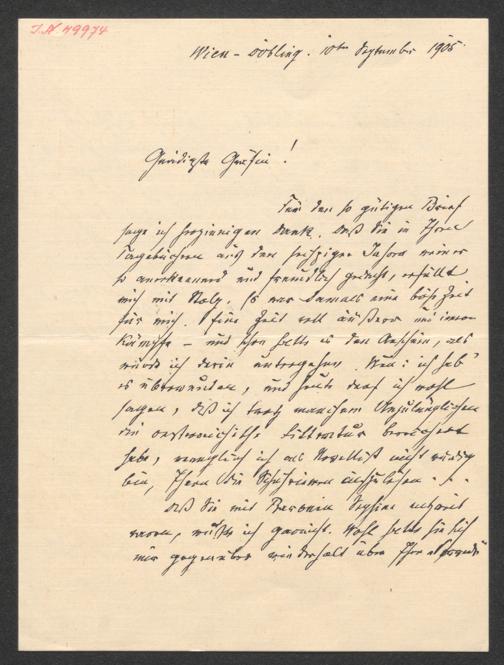 I.N. 49974
Wien - Döbling. 10ten September 1905.
Gnädigste Gräfin!
Für den so gütigen Brief
sage ich herzinnigen Dank. Daß Sie in Ihren
Tagebüchern aus den sechziger Jahren meiner
so anerkennend und freundlich gedacht, erfüllt
mich mit Stolz. Es war damals eine böse Zeit
für mich. Eine Zeit voll äußerer und innerer
Kämpfe - und schon hatte es den Anschein, als
würde ich darin untergehen. Nun: ich hab'
es überwunden, und heute darf ich wohl
sagen, daß ich trotz manchem Unzulänglichen
die oesterreichische Litteratur bereichert
habe, wenngleich ich als Novellist nicht würdig
bin, Ihnen die Schuhriemen aufzulösen. -
Daß Sie mit Baronin Sophie
waren, wußte ich gar nicht. Wohl hatte sie sich
mir gegenüber wiederholt über Ihre